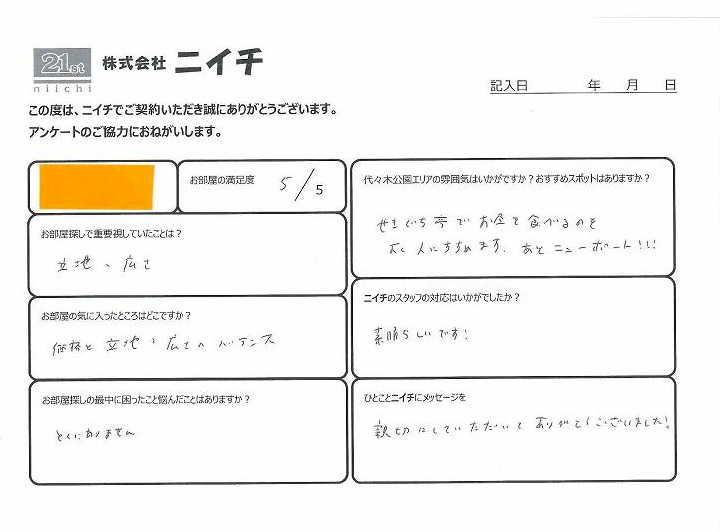 21st
niichi
株式会社 ニイチ
記入日 年 月 日
この度は、ニイチでご契約いただき誠にありがとうございます。
アンケートのご協力におねがいします。
お部屋の満足度 5/5
お部屋探しで重要視していたことは?
立地、広さ
お部屋の気に入ったところはどこですか?
価格と立地・広さのバランス
お部屋探しの最中に困ったこと悩んだことはありますか?
とくにありません
代々木公園エリアの雰囲気はいかがですか?おすすめスポットはありますか?
せきぐち亭でお昼を食べるのを
よく人にすすめます。あとニューポート!!!
ニイチのスタッフの対応はいかがでしたか?
素晴らしいです!
ひとことニイチにメッセージを
親切にしていただいてありがとうございました!